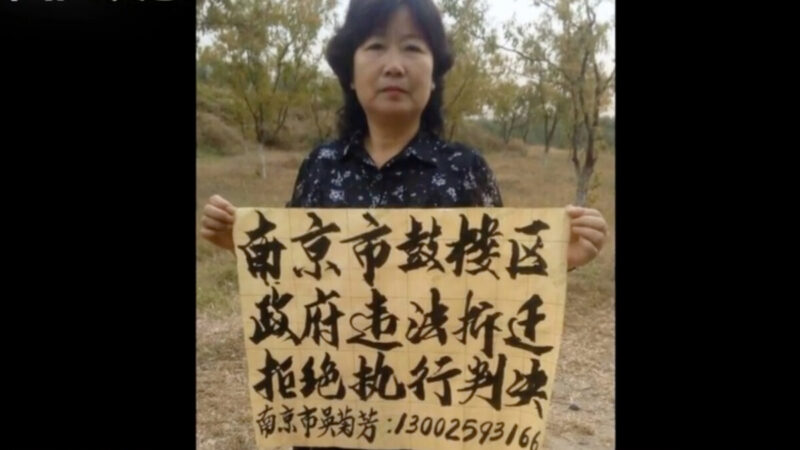 南京市鼓楼区
政府违法拆迁
拒绝执行判决
南京市吴菊芳:13002593166